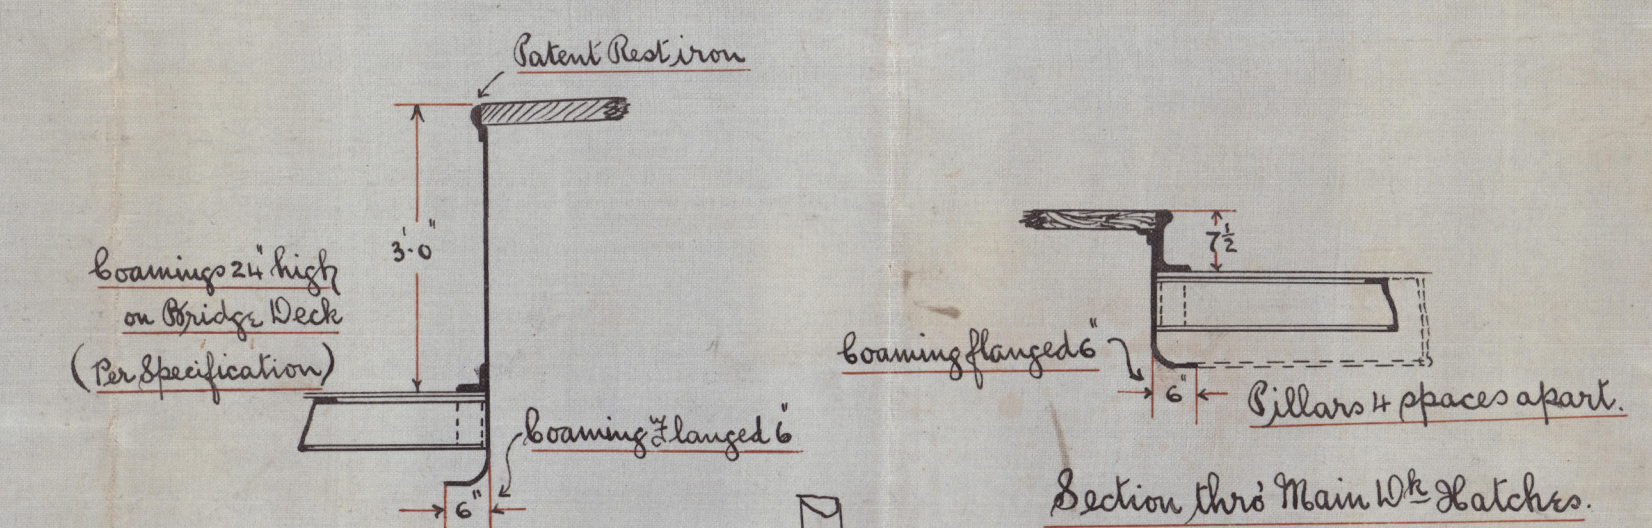 Patent Rest iron
3'-0"
Coamings 24" high
on Bridge Deck
(Per Specification)
Coaming Flanged 6"
6"
7½
Coaming flanged 6"
6"
Pillars 4 spaces apart.
Section thro' Main Dk Hatches.